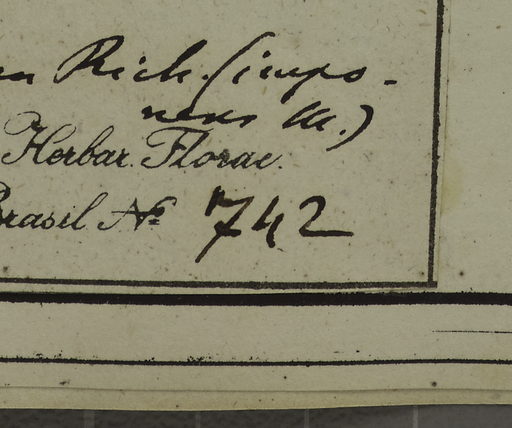 Rich. (impo-
nens M.)
Herbar. Florae.
Brasil No 742